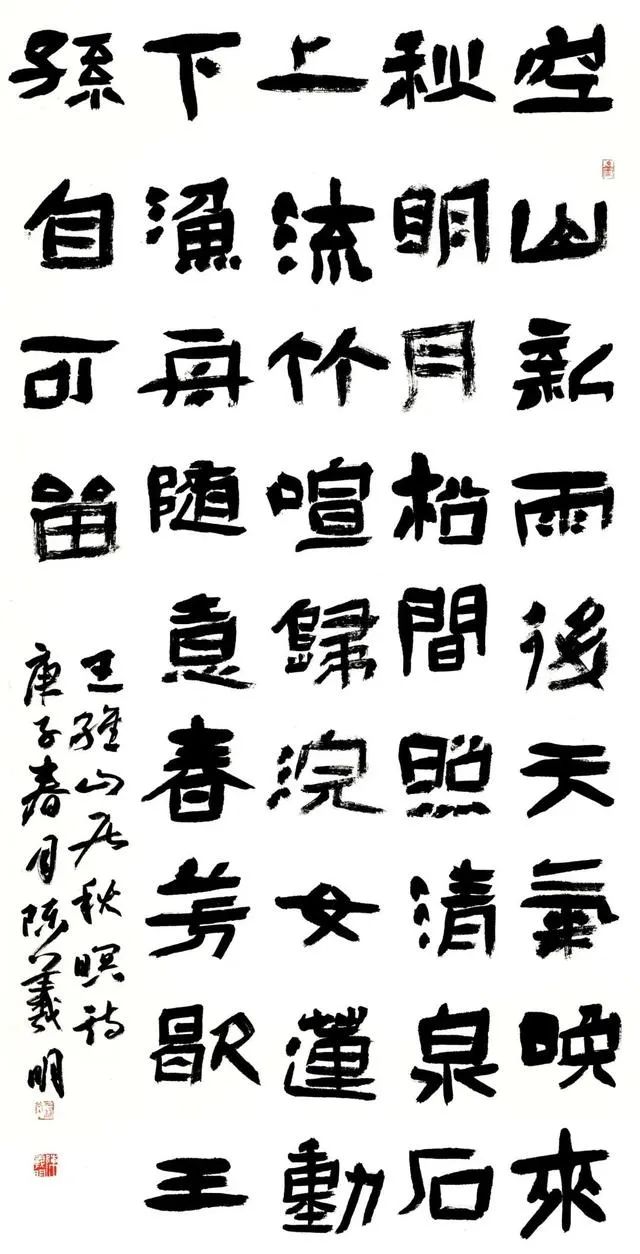 空山新雨後天氣晚來
秋明月松間照清泉石
上流竹喧歸浣女蓮動
下漁舟随意春芳歇王
孫自可留
王維山居秋暝詩
庚子春月陈羲明